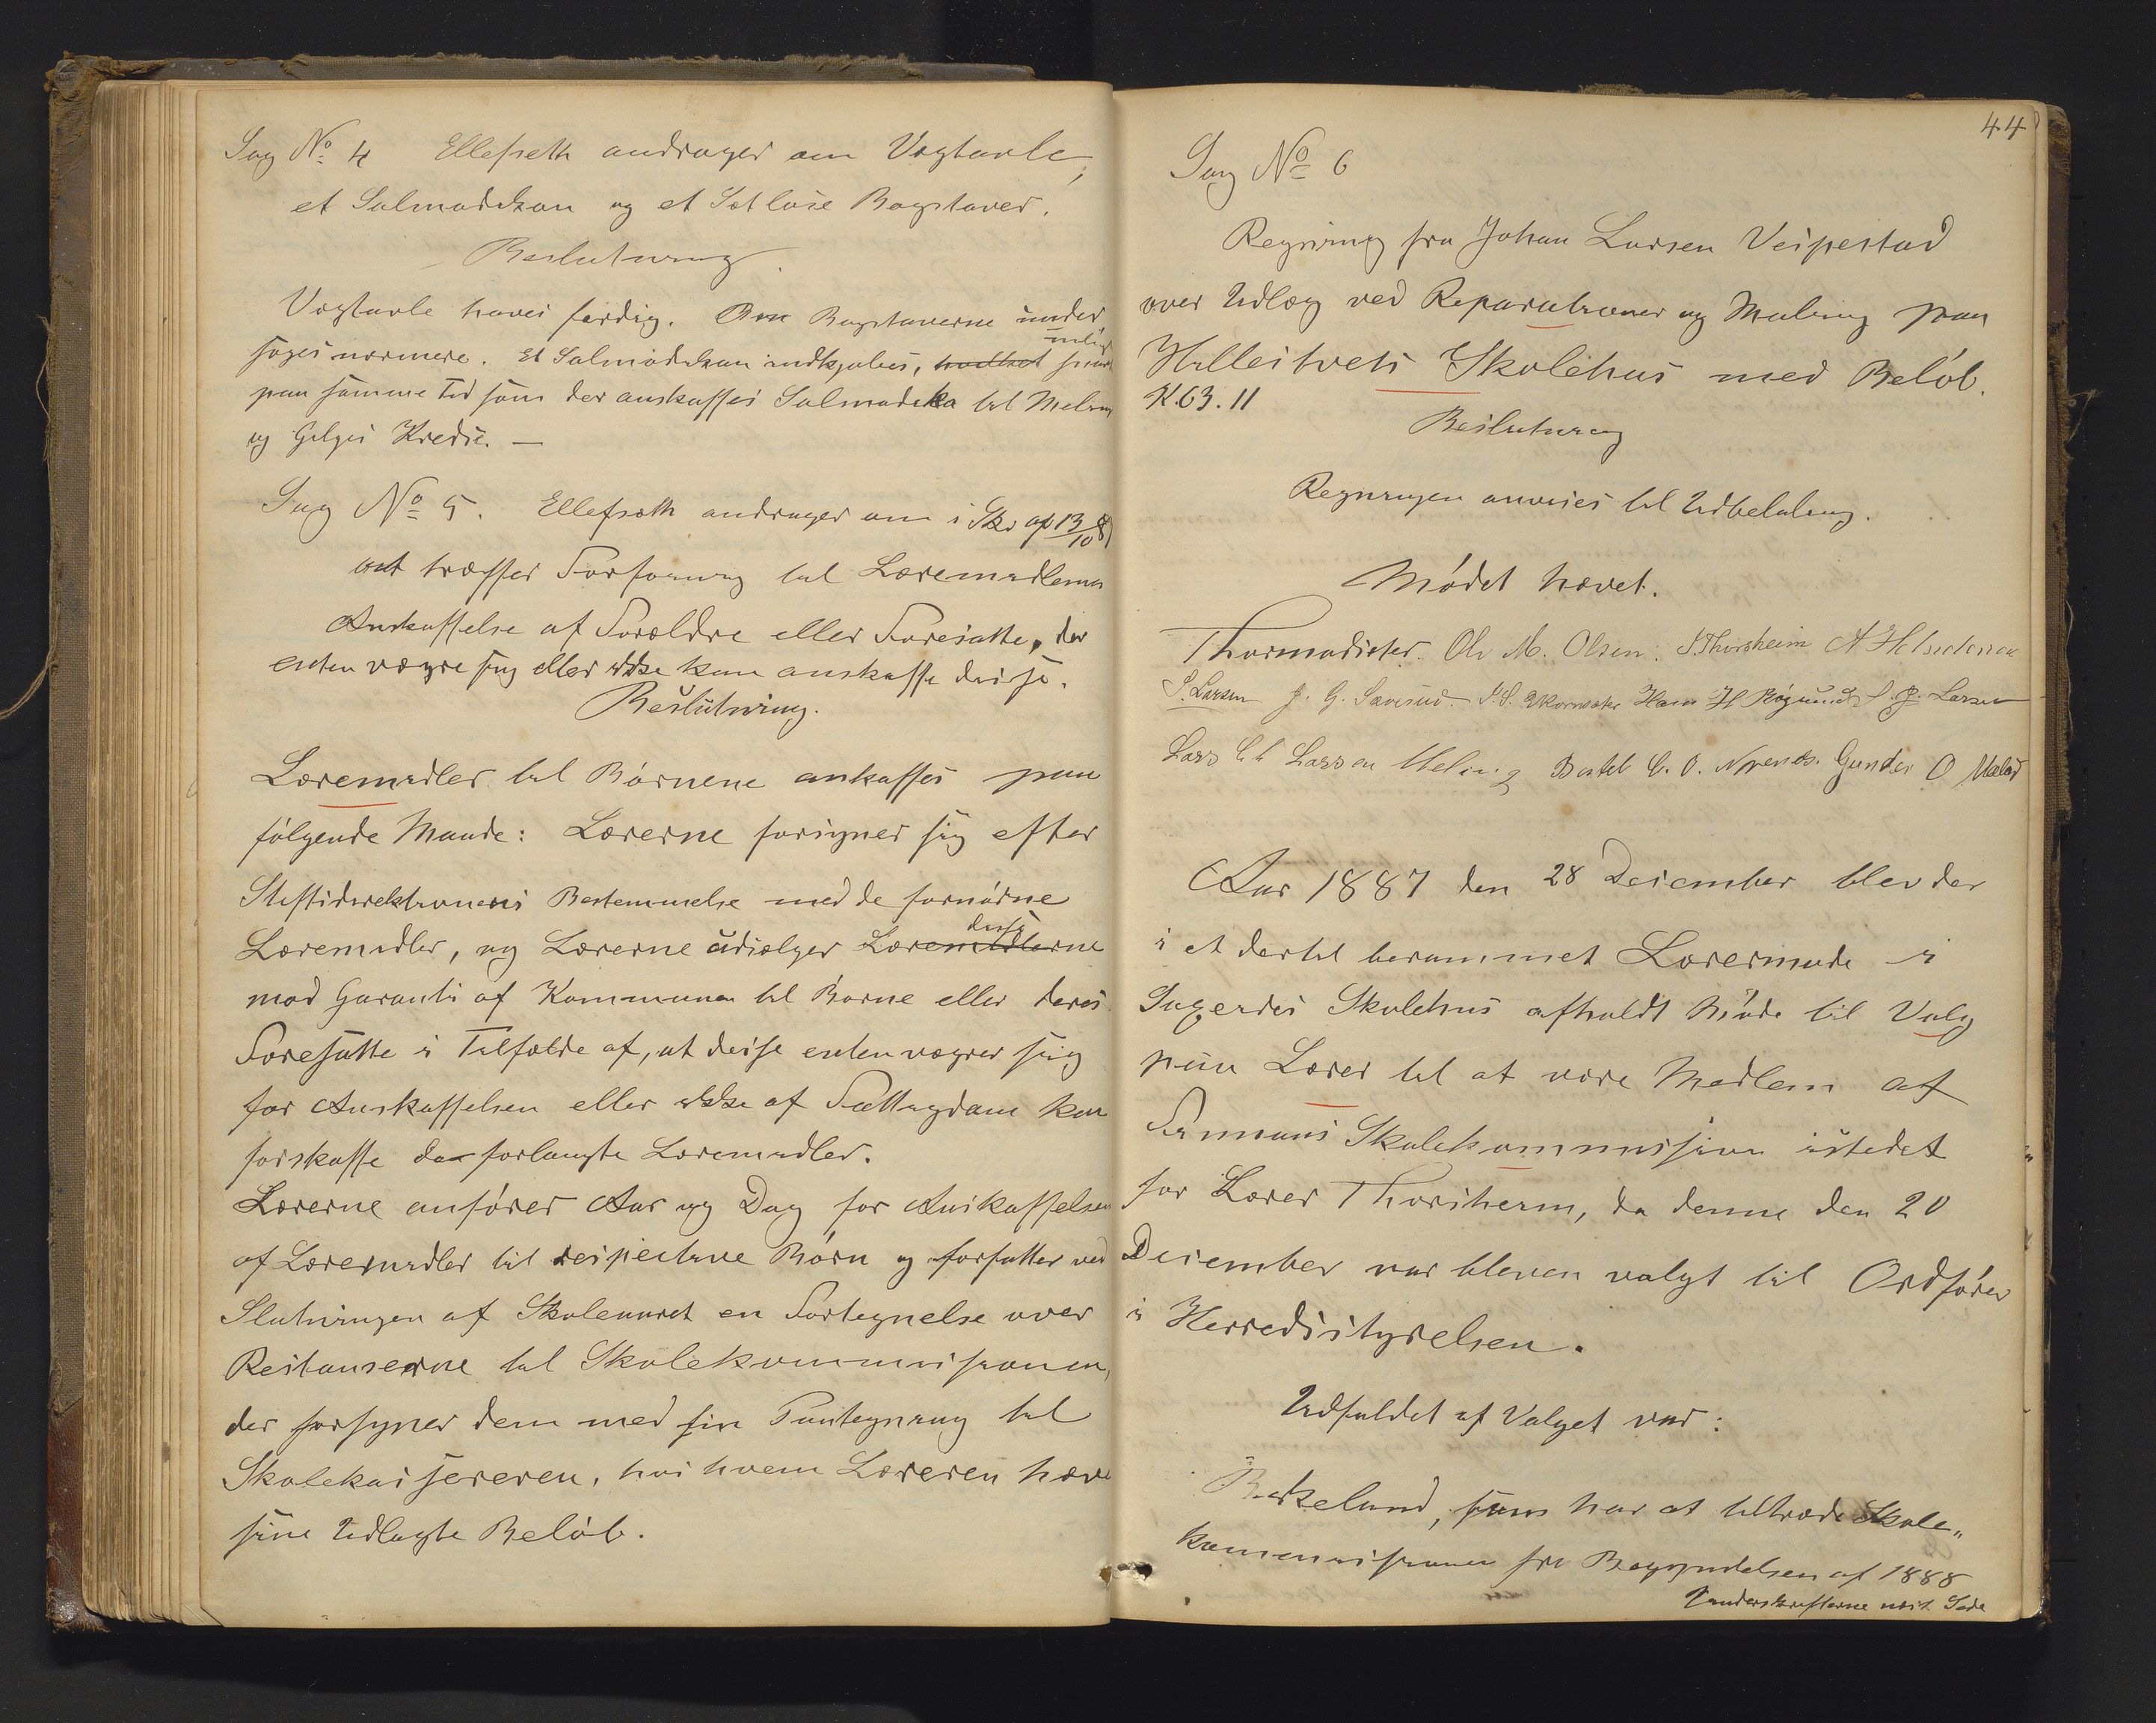 Sag No 4 Ellefseth andrager om Vægtavle,
et Salmodikon og et Sæt løse Bogstaver.
Beslutning.
Vægtavle haves færdig. Bogstaverne under
søges nærmere. Et Salmodikon indkjøbes,
paa samme Tid som der anskaffes Salmodika til Meling
og Helges Kreds. —
Sag No 5. Ellefseth andrager om i Skr af 13/10 87
at træffes Forføining til Læremidlernes
Anskaffelse af Forældre eller Foresatte, der
enten vægre sig eller ikke kan anskaffe disse.
Beslutning.
Læremidler til Børnene anskaffes paa
følgende Maade: Lærerne forsyner sig efter
Stiftsdirektionens Bestemmelse med de fornødne
disse
Læremidler, og Lærerne udsælger Læremidlerne
mod Garanti af Kommunen til Børne eller deres
Foresatte i Tilfælde af, at disse enten vægrer sig
for Anskaffelsen eller ikke af Fattigdom kan
forskaffe de forlangte Læremidler.
Lærerne anfører Aar og Dag for Anskaffelsen
af Læremidler til respective Børn og forfatter ved
Slutningen af Skoleaaret en Fortegnelse over
Restanserne til Skolekommissionen,
der forsyner dem med sin Paategning til
Skolekassereren, hos hvem Læreren hæve
sine Udlagte Beløb.
44
Sag No 6
Regning fra Johan Larsen Veipestad
over Udlæg ved Reparationer og Maling paa
Halleitvets Skolehus med Beløb.
K. 63. 11
Beslutning
Regningen anvises til Udbetaling.
Mødet hævet.
Thormodsæter. Ole M. Olsen. S. Thorsheim
S. Larsen J. G. Savesund. Hans H J. Larsen
Lars Larsen Meling Bertel C. O. Gunder O
Aar 1887 den 28 December blev der
i et dertil berammet Lærermøde i
Skolehus afholdt Møde til Valg
paa Lærer til at være Medlem af
Finnaas Skolekommission istedet
for Lærer Thorsheim, da denne den 20
December var bleven valgt til Ordfører
i Herredsstyrelsen.
Udfaldet af Valget var:
Birkeland, som har at tiltræde Skole„
kommissionen fra Begyndelsen af 1888
Underskrifterne næst Side